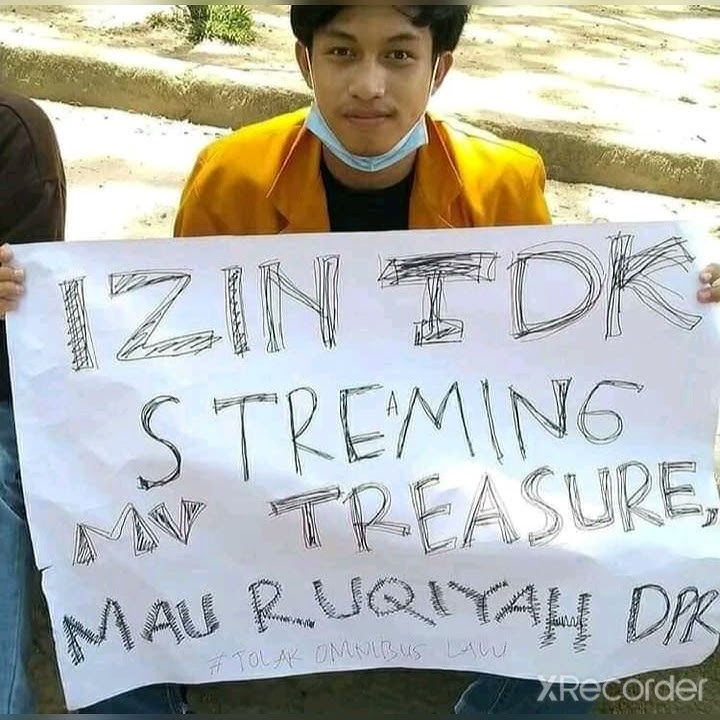 IZIN TDK
STREAMING
MV TREASURE,
MAU RUQIYAH DPR
#TOLAK OMNIBUS LAW
XRecorder